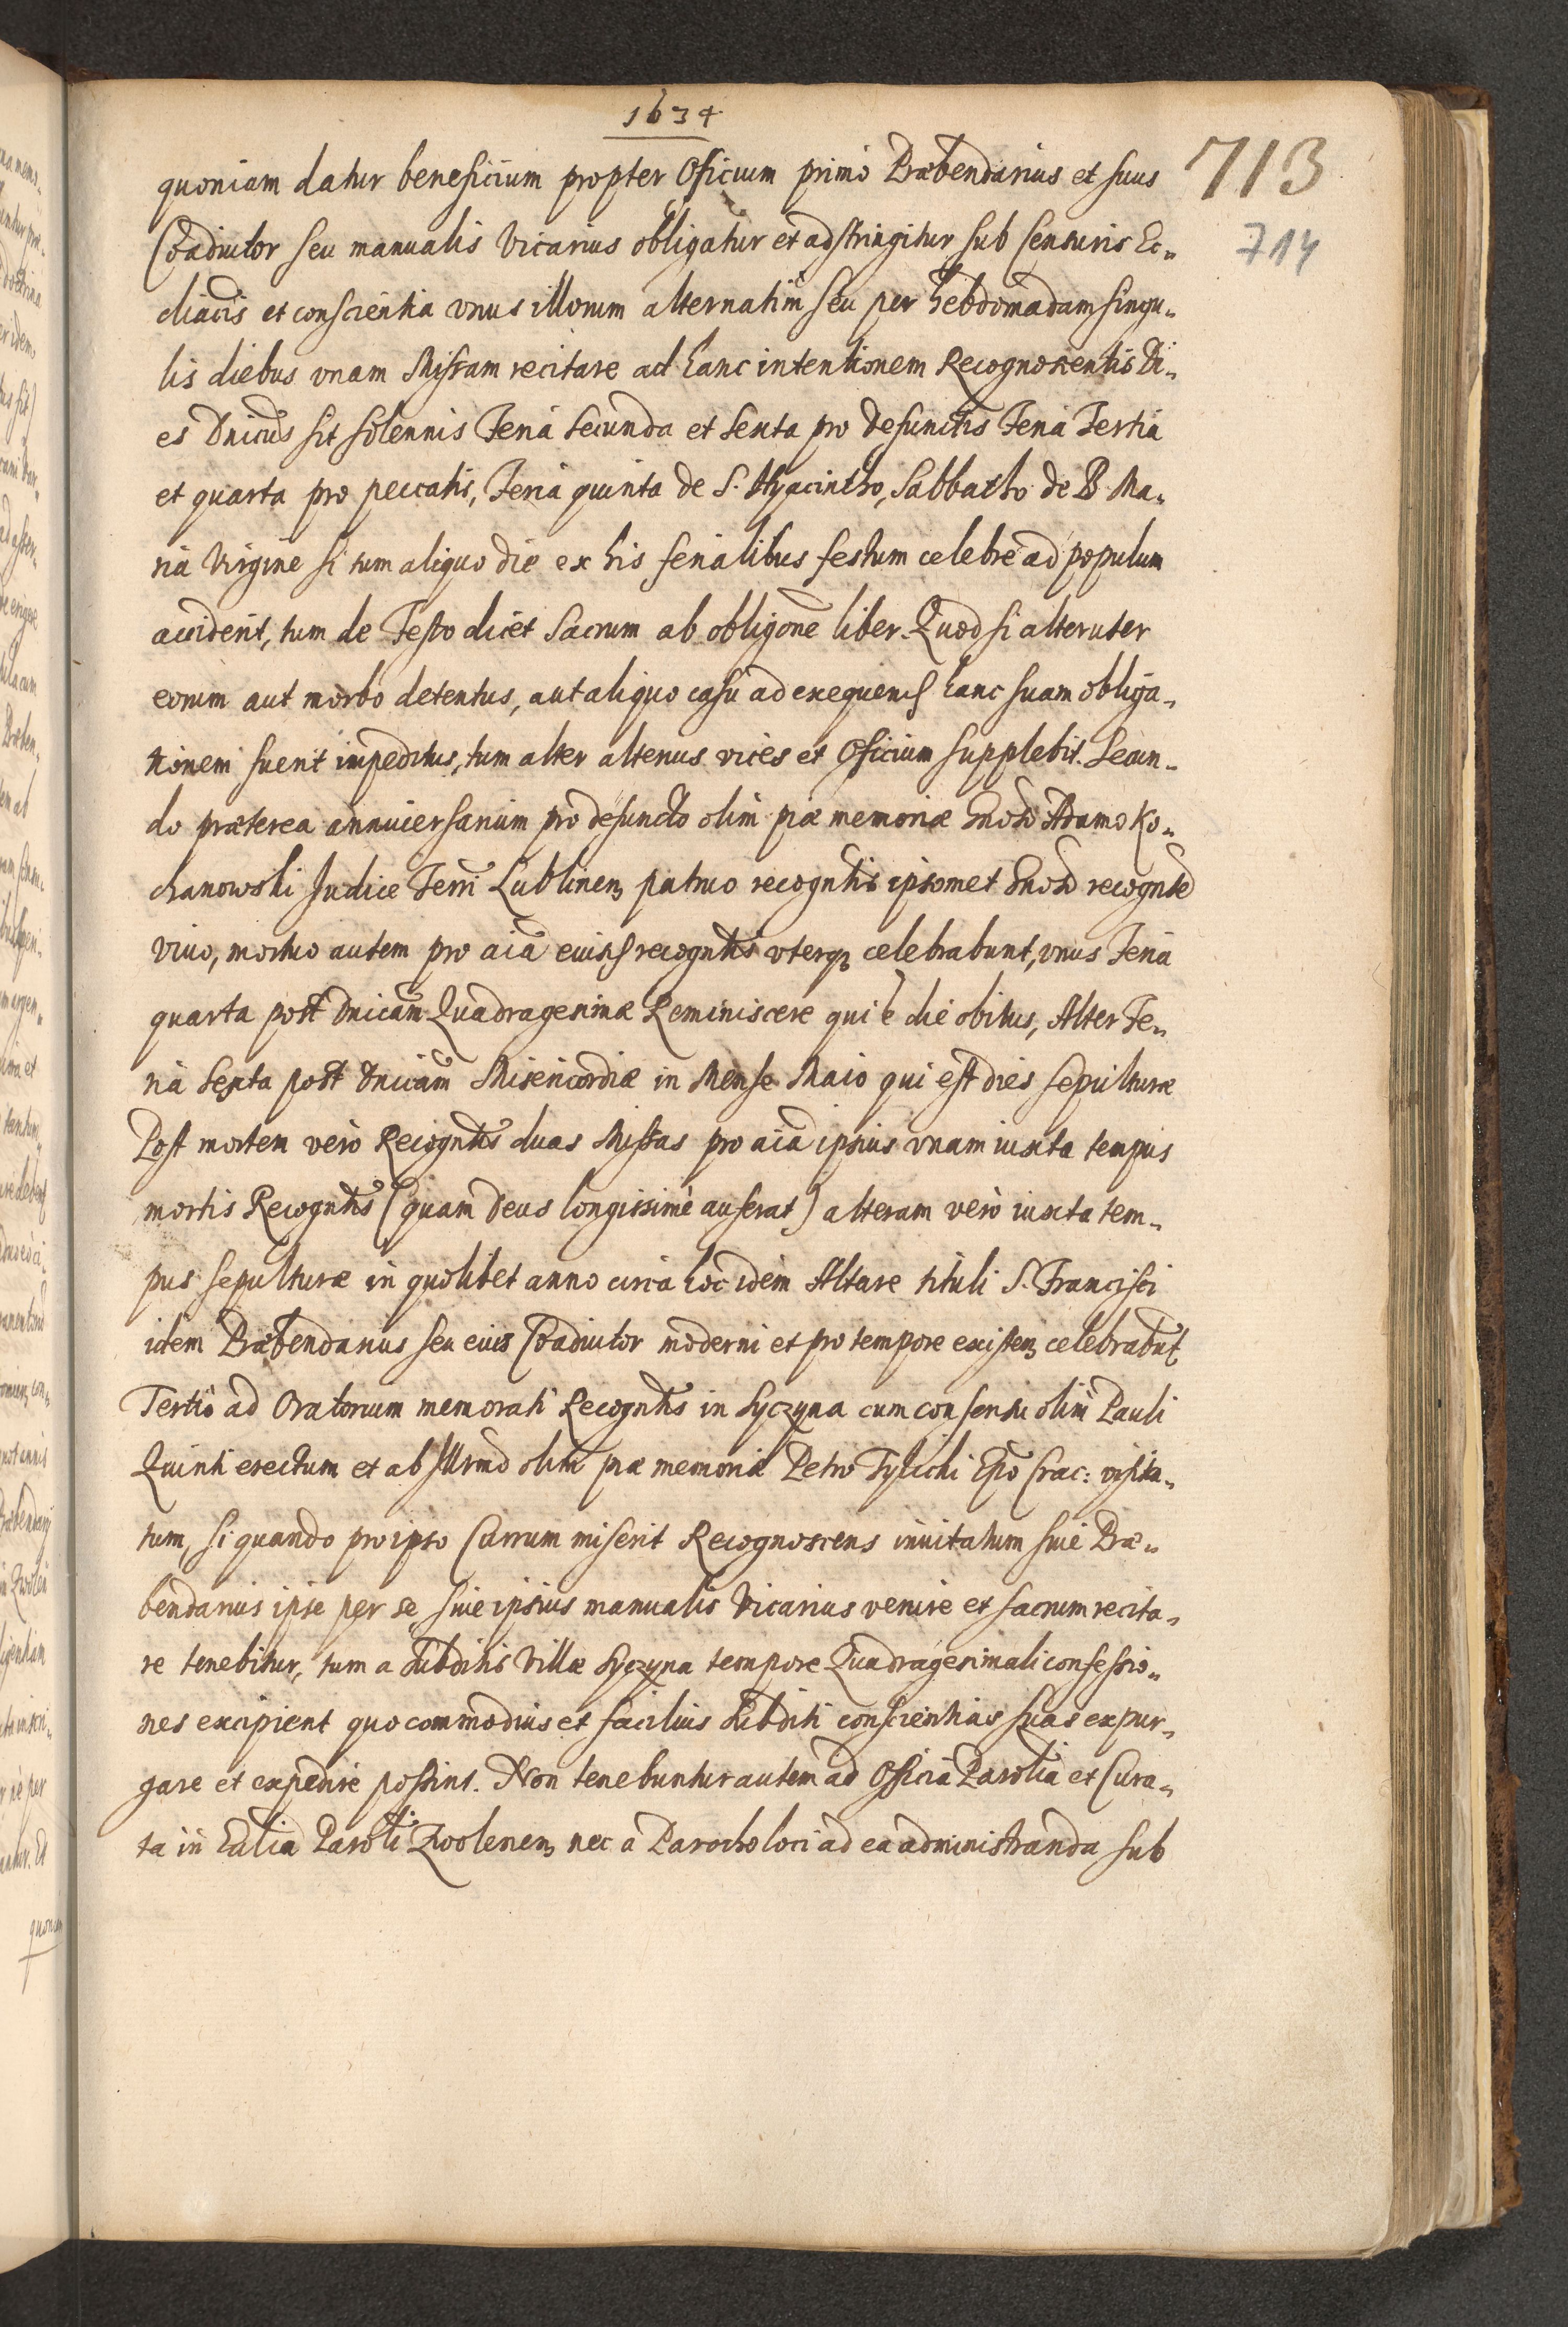 1634
713
714
quoniam datur beneficium propter Officium primo Præbendarius et suus
Coadiutor seu manualis Vicarius obligatur et adstringitur sub Censuris Ec„
cliacis et conscientia vnus illorum alternatim seu per hebdomadam singu„
lis diebus vnam Missam recitare ad hanc intentionem Recognoscentis Di„
es Dnicus sit solennis Feria secunda et sexta pro defunctis Feria Tertia
et quarta pro peccatis, Feria quinta de S. Hyacintho, Sabbatho de B. Ma„
ria Virgine si tum aliquo die ex his ferialibus festum celebre ad populum
acciderit, tum de Festo dicet Sacrum ab obligone liber. Quod si alteruter
eorum aut morbo detentus, aut aliquo casu ad exequend hanc suam obliga„
tionem fuerit impeditus, tum alter alterius vices et Officium supplebit. Secun„
do præterea anniuersarium pro defuncto olim piæ memoriæ Gnoso Adamo Ko„
chanowski Judice Terri Lublinen patruo recogntis ipsomet Gnoso recognte
viuo, mortuo autem pro aia eiusd recogntis vterq celebrabunt, vnus Feria
quarta post Dnicam Quadragesimæ Reminiscere qui e die obitus, Alter Fe„
ria Sexta post Dnicam Misericordiæ in Mense Maio qui est dies sepulturæ
Post mortem vero Recogntis duas Missas pro aia ipsius vnam iuxta tempus
mortis Recogntis (quam Deus longissime auferat) alteram vero iuxta tem„
pus sepulturæ in quolibet anno circa hoc idem Altare tituli S. Francisci
idem Præbendarius seu eius Coadiutor moderni et pro tempore existen celebrabut
Tertio ad Oratorium memorati Recogntis in Syczyna cum consensu olim Pauli
Quinti erectum et ab Illrmo olim piæ memoriæ Petro Tylicki Epo Crac: visita„
tum, si quando pro ipso Currum miserit Recognoscens inuitatum siue Præ„
bendarius ipse per se siue ipsius manualis Vicarius venire et sacrum recita„
re tenebitur, tum a subditis Villæ Syczyna tempore Quadragesimali confessio„
nes excipient quo commodius et facilius Subditi conscientias suas expur„
gare et expedire possint. Non tenebuntur autem ad Officia Parolia et Cura„
ta in Eclia Paroli Zwolenen nec a Parocho loci ad ea administranda sub